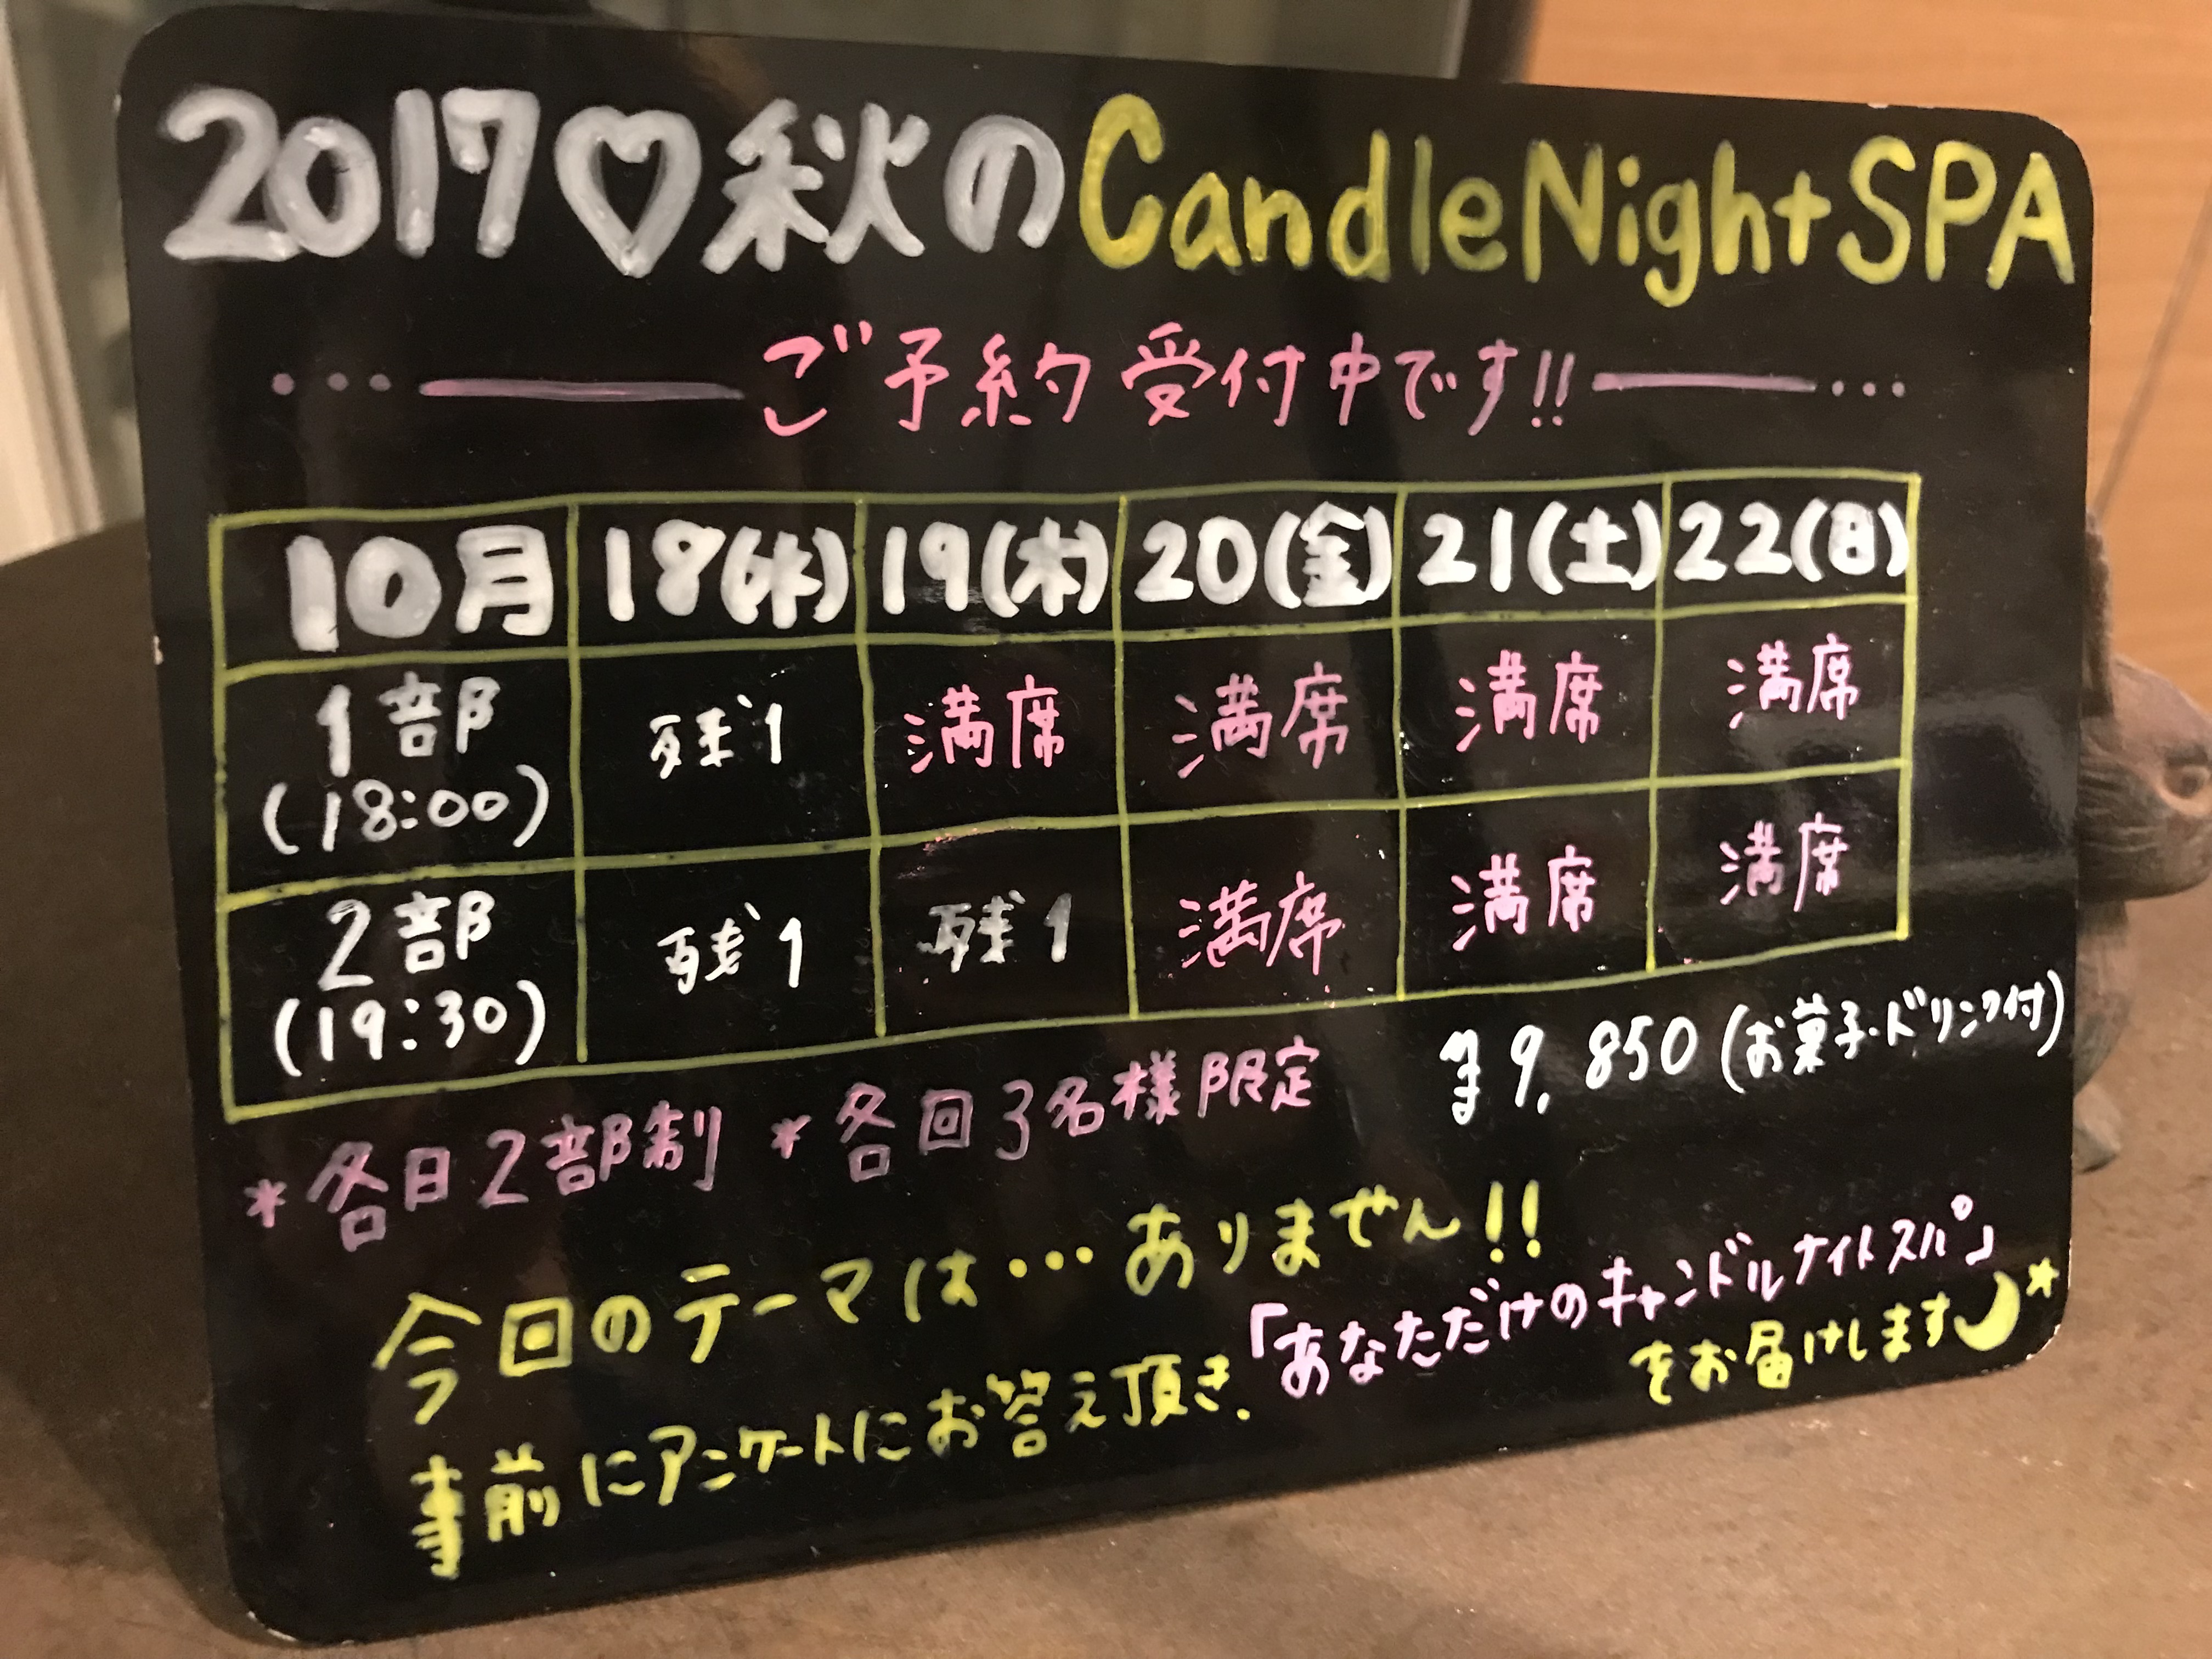 2017♡秋のCandleNightSPA
・・・――ご予約受付中です!!――・・・
10月 18(水) 19(木) 20(金) 21(土) 22(日)
1部 (18:00) 残1 満席 満席 満席 満席
2部 (19:30) 残1 残1 満席 満席 満席
¥9,850(お菓子・ドリンク付)
*各日2部制 *各回3名様限定
今回のテーマは・・・ありません!!
事前にアンケートにお答え頂き、「あなただけのキャンドルナイトスパ」
をお届けします